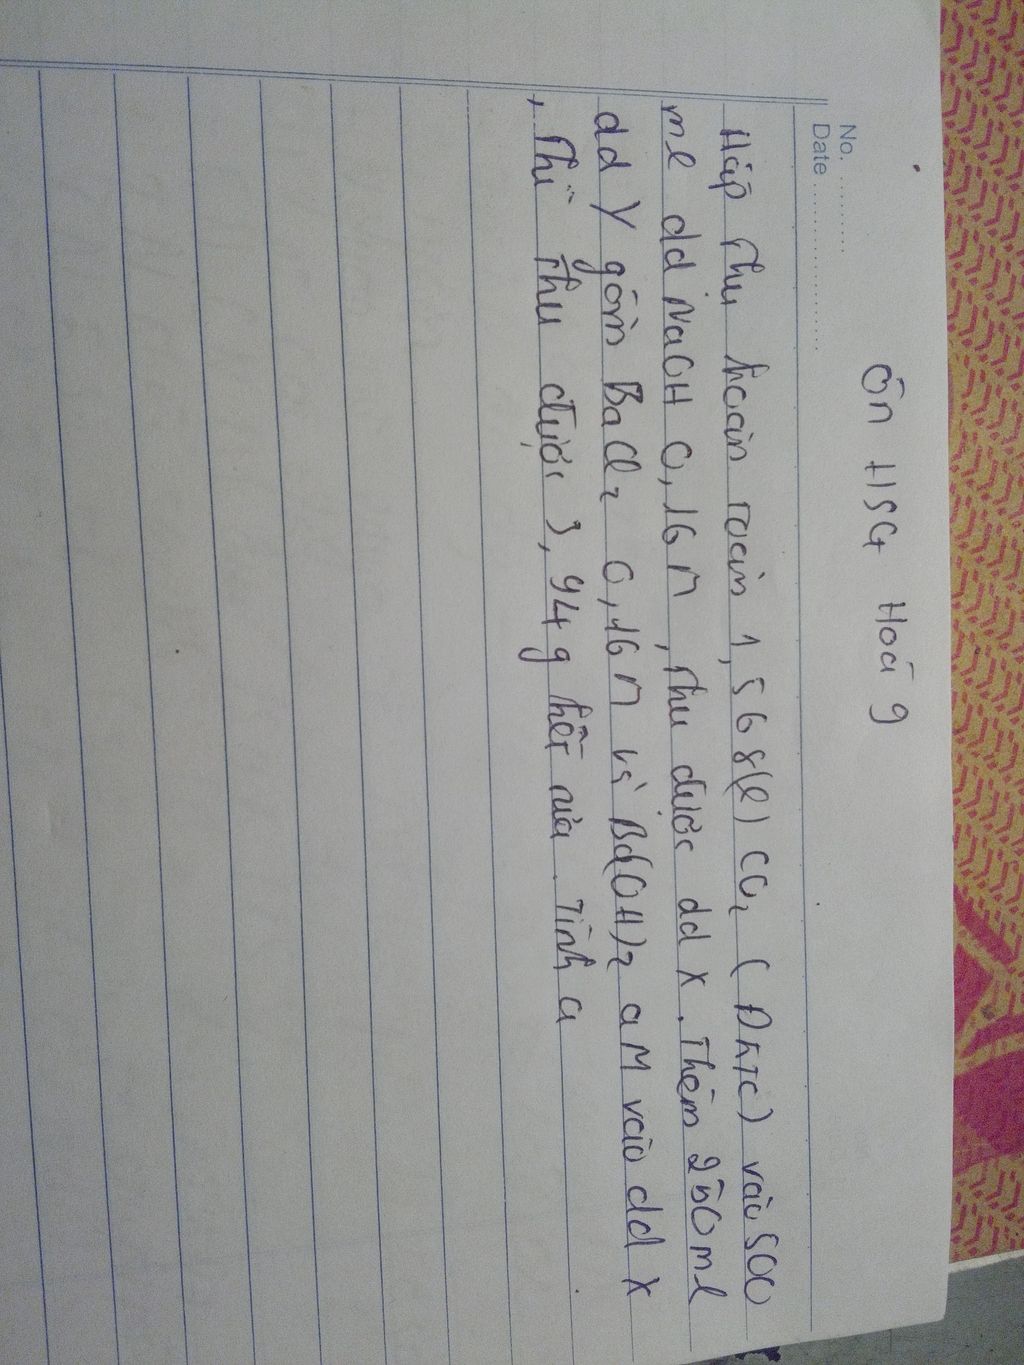 Ôn HSG Hoá 9
No. ............
Date ........................
Hấp thụ hoàn toàn 1,568(l) CO₂ (ĐKTC) vào 500
ml dd NaOH 0,16 M, thu được dd X. Thêm 250ml
dd Y gồm BaCl₂ 0,16 M và Ba(OH)₂ a M vào dd X
, thì thu được 3,94 g kết tủa. Tính a